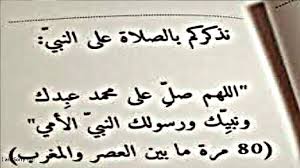 نذكركم بالصلاة على النبيّ:
"اللهم صلِّ على محمد عبدك
ونبيّك ورسولك النبيّ الأمي"
(80 مرة ما بين العصر والمغرب)